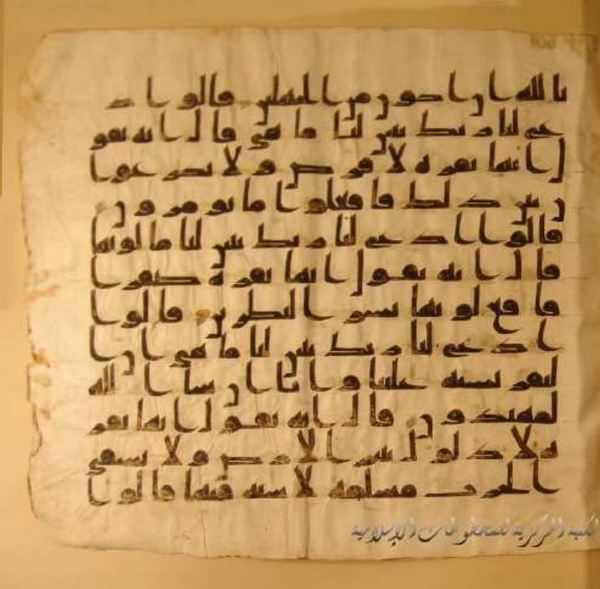 بالله ان اكون من الجهلين قالوا اد
ع لنا ربك يبين لنا ما هي قال انه يقو
ل انها بقرة لا فرض ولا بكر عوا
ن بين ذلك فافعلوا ما تومرون
قالوا ادع لنا ربك يبين لنا ما لونها
قال انه يقول انها بقرة صفرا
فاقع لونها تسر النظرين قالوا
ادع لنا ربك يبين لنا ما هي ان ا
لبقر تشبه علينا وانا ان شا الله
لمهتدون قال انه يقول انها بقر
ة لا ذلول تثير الارض ولا تسقي
الحرث مسلمة لا شية فيها قالوا ا
المكتبة المركزية للمخطوطات الإسلامية